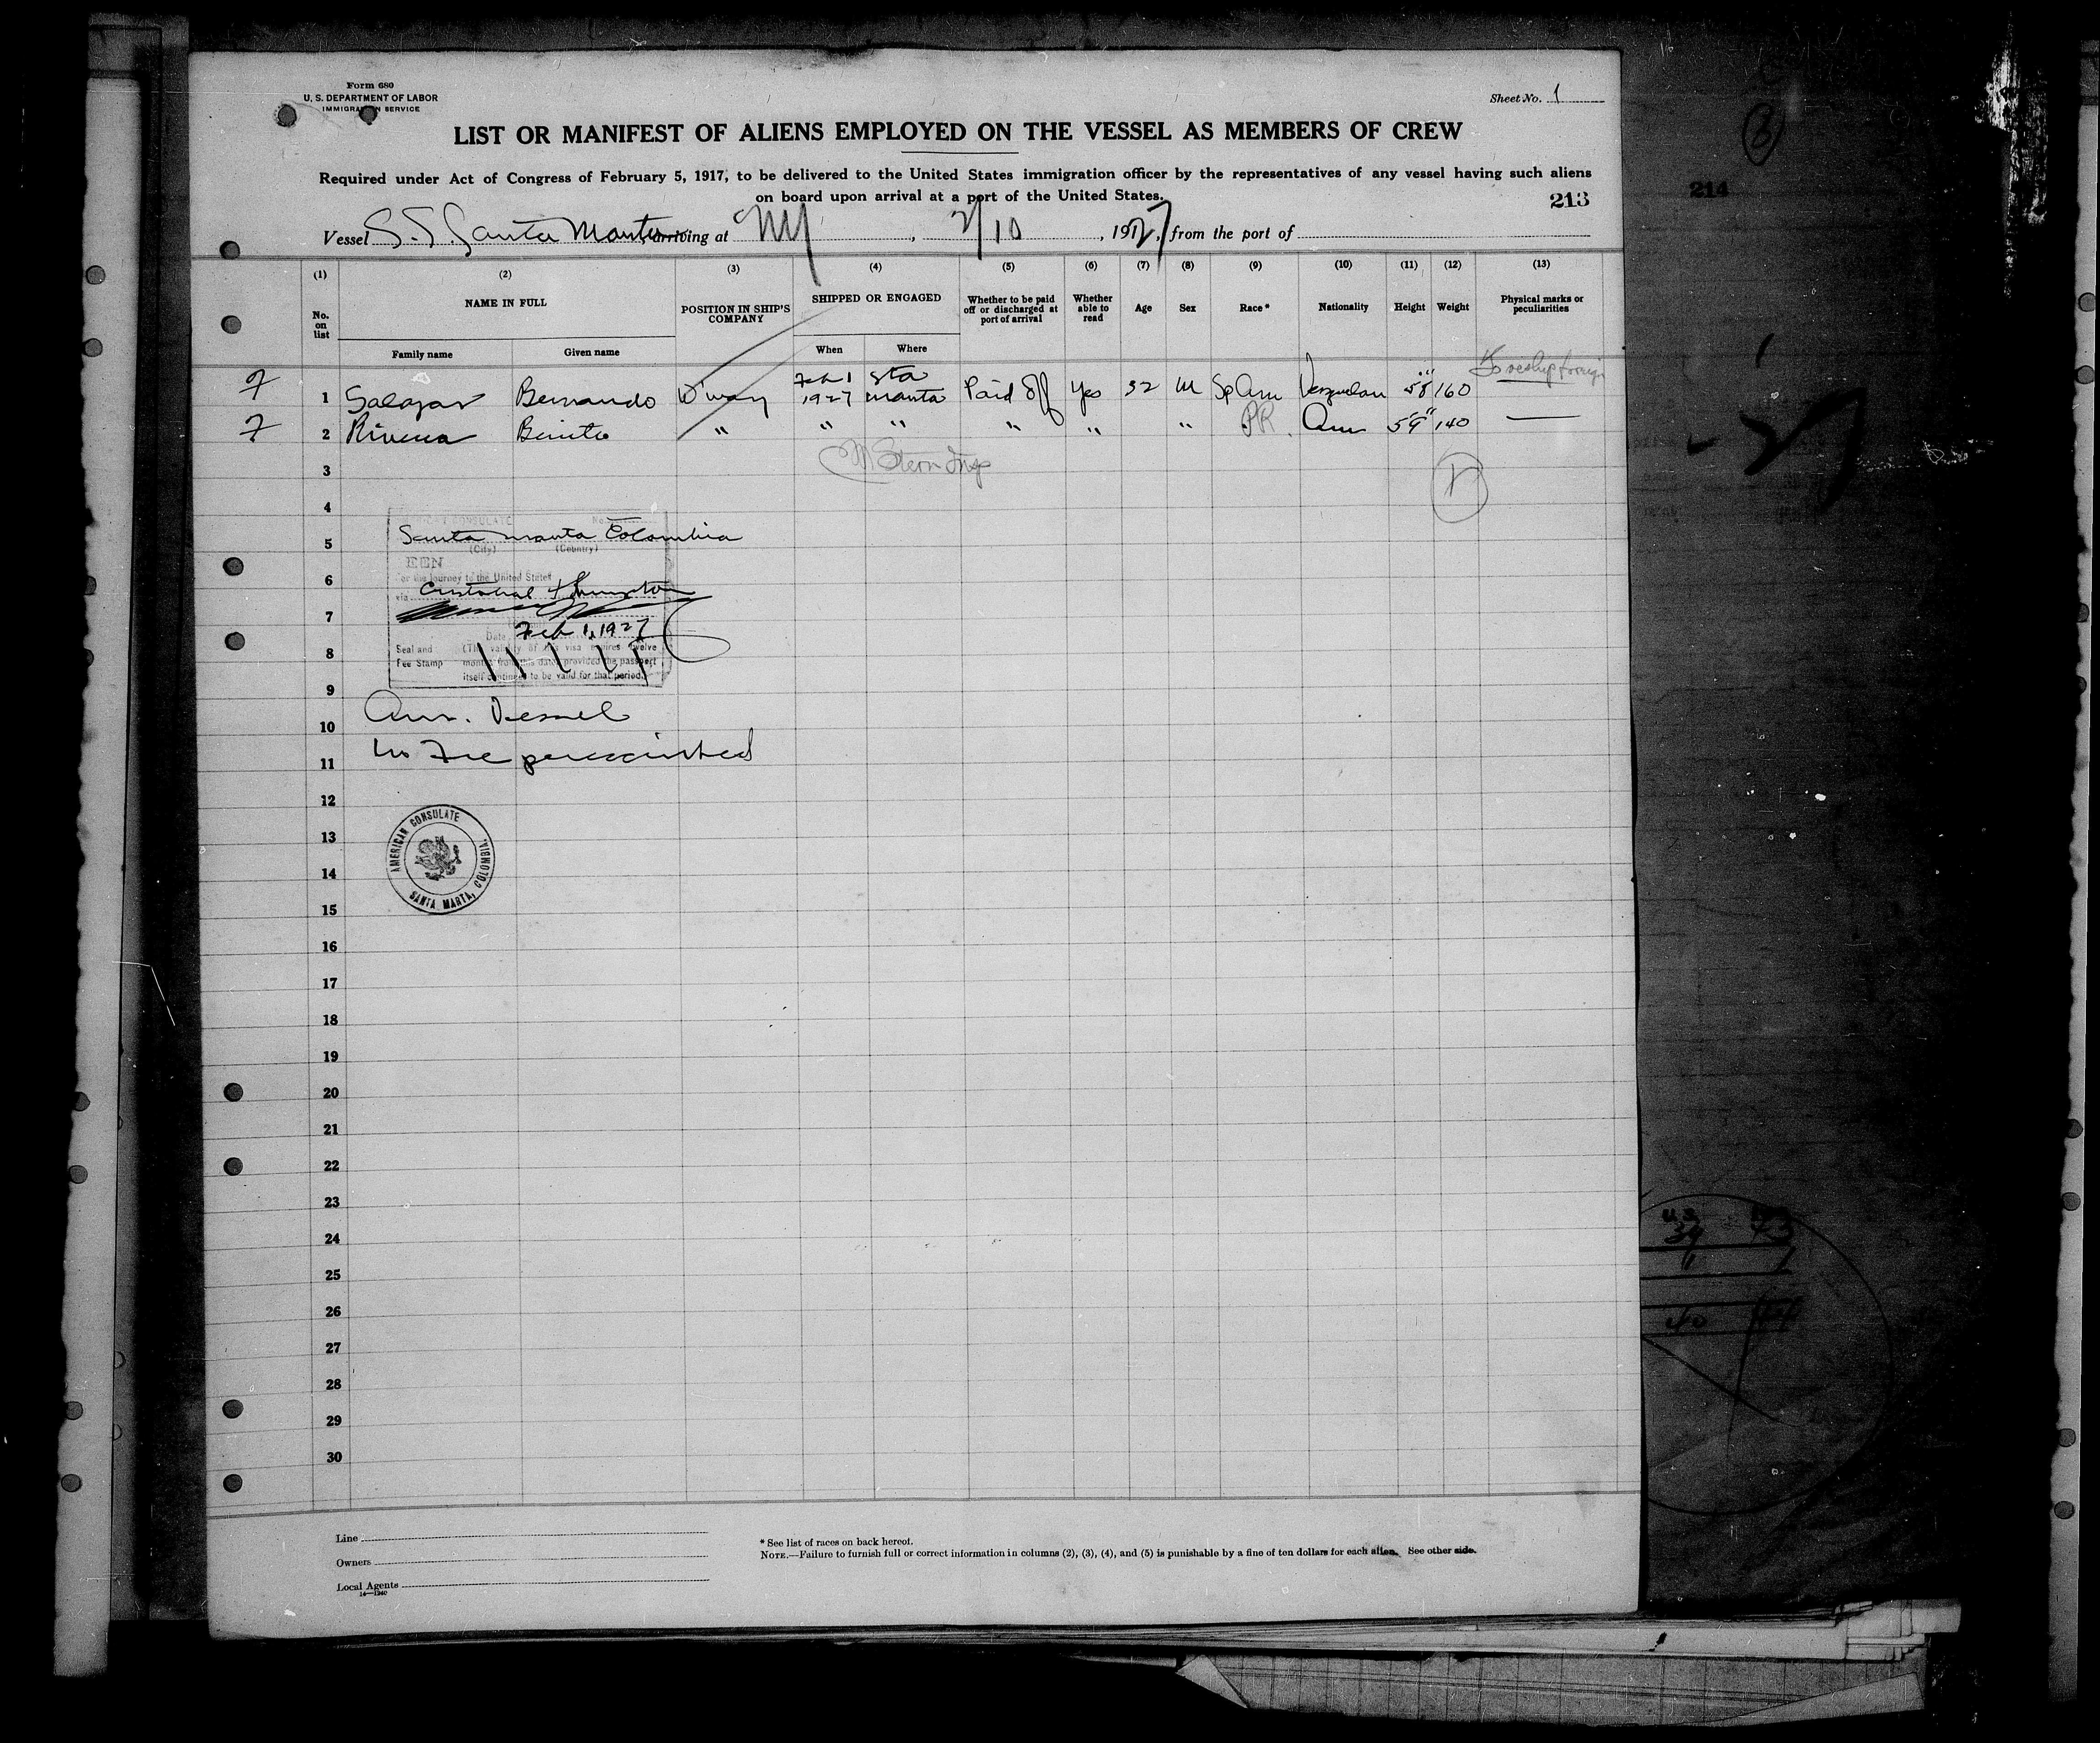 Form 680
U. S. DEPARTMENT OF LABOR
IMMIGRATION SERVICE
Sheet No. 1
LIST OR MANIFEST OF ALIENS EMPLOYED ON THE VESSEL AS MEMBERS OF CREW
Required under Act of Congress of February 5, 1917, to be delivered to the United States immigration officer by the representatives of any vessel having such aliens
on board upon arrival at a port of the United States.
213
214
Vessel S.S. Santa Marta, arriving at NY, 2/10, 1927, from the port of
(1) (2) (3) (4) (5) (6) (7) (8) (9) (10) (11) (12) (13)
No. on list
NAME IN FULL
Family name Given name
POSITION IN SHIP'S COMPANY
SHIPPED OR ENGAGED
When Where
Whether to be paid off or discharged at port of arrival
Whether able to read
Age
Sex
Race*
Nationality
Height
Weight
Physical marks or peculiarities
To reship foreign
1 Salazar Bernardo W'way Feb 1 1927 Sta Marta Paid Off Yes 32 M Sp Am Venezuelan 5'8" 160
2 Rivera Benito " " " " " " PR Am 5'9" 140 —
3
M Stern Insp
4
AMERICAN CONSULATE
5 Santa Marta Colombia
(City) (Country)
SEEN
For the journey to the United States
6 via Cristobal & Kingston
7
Date Feb 1, 1927
8
Seal and Fee Stamp
(The validity of this visa expires twelve
months from this date provided the passport
itself continues to be valid for that period.)
9
10 Am. Vessel
11 No Fee prescribed
12
13
AMERICAN CONSULATE
SANTA MARTA, COLOMBIA.
14
15
16
17
18
19
20
21
22
23
24
25
26
27
28
29
30
Line
Owners
Local Agents
* See list of races on back hereof.
NOTE.—Failure to furnish full or correct information in columns (2), (3), (4), and (5) is punishable by a fine of ten dollars for each alien. See other side.